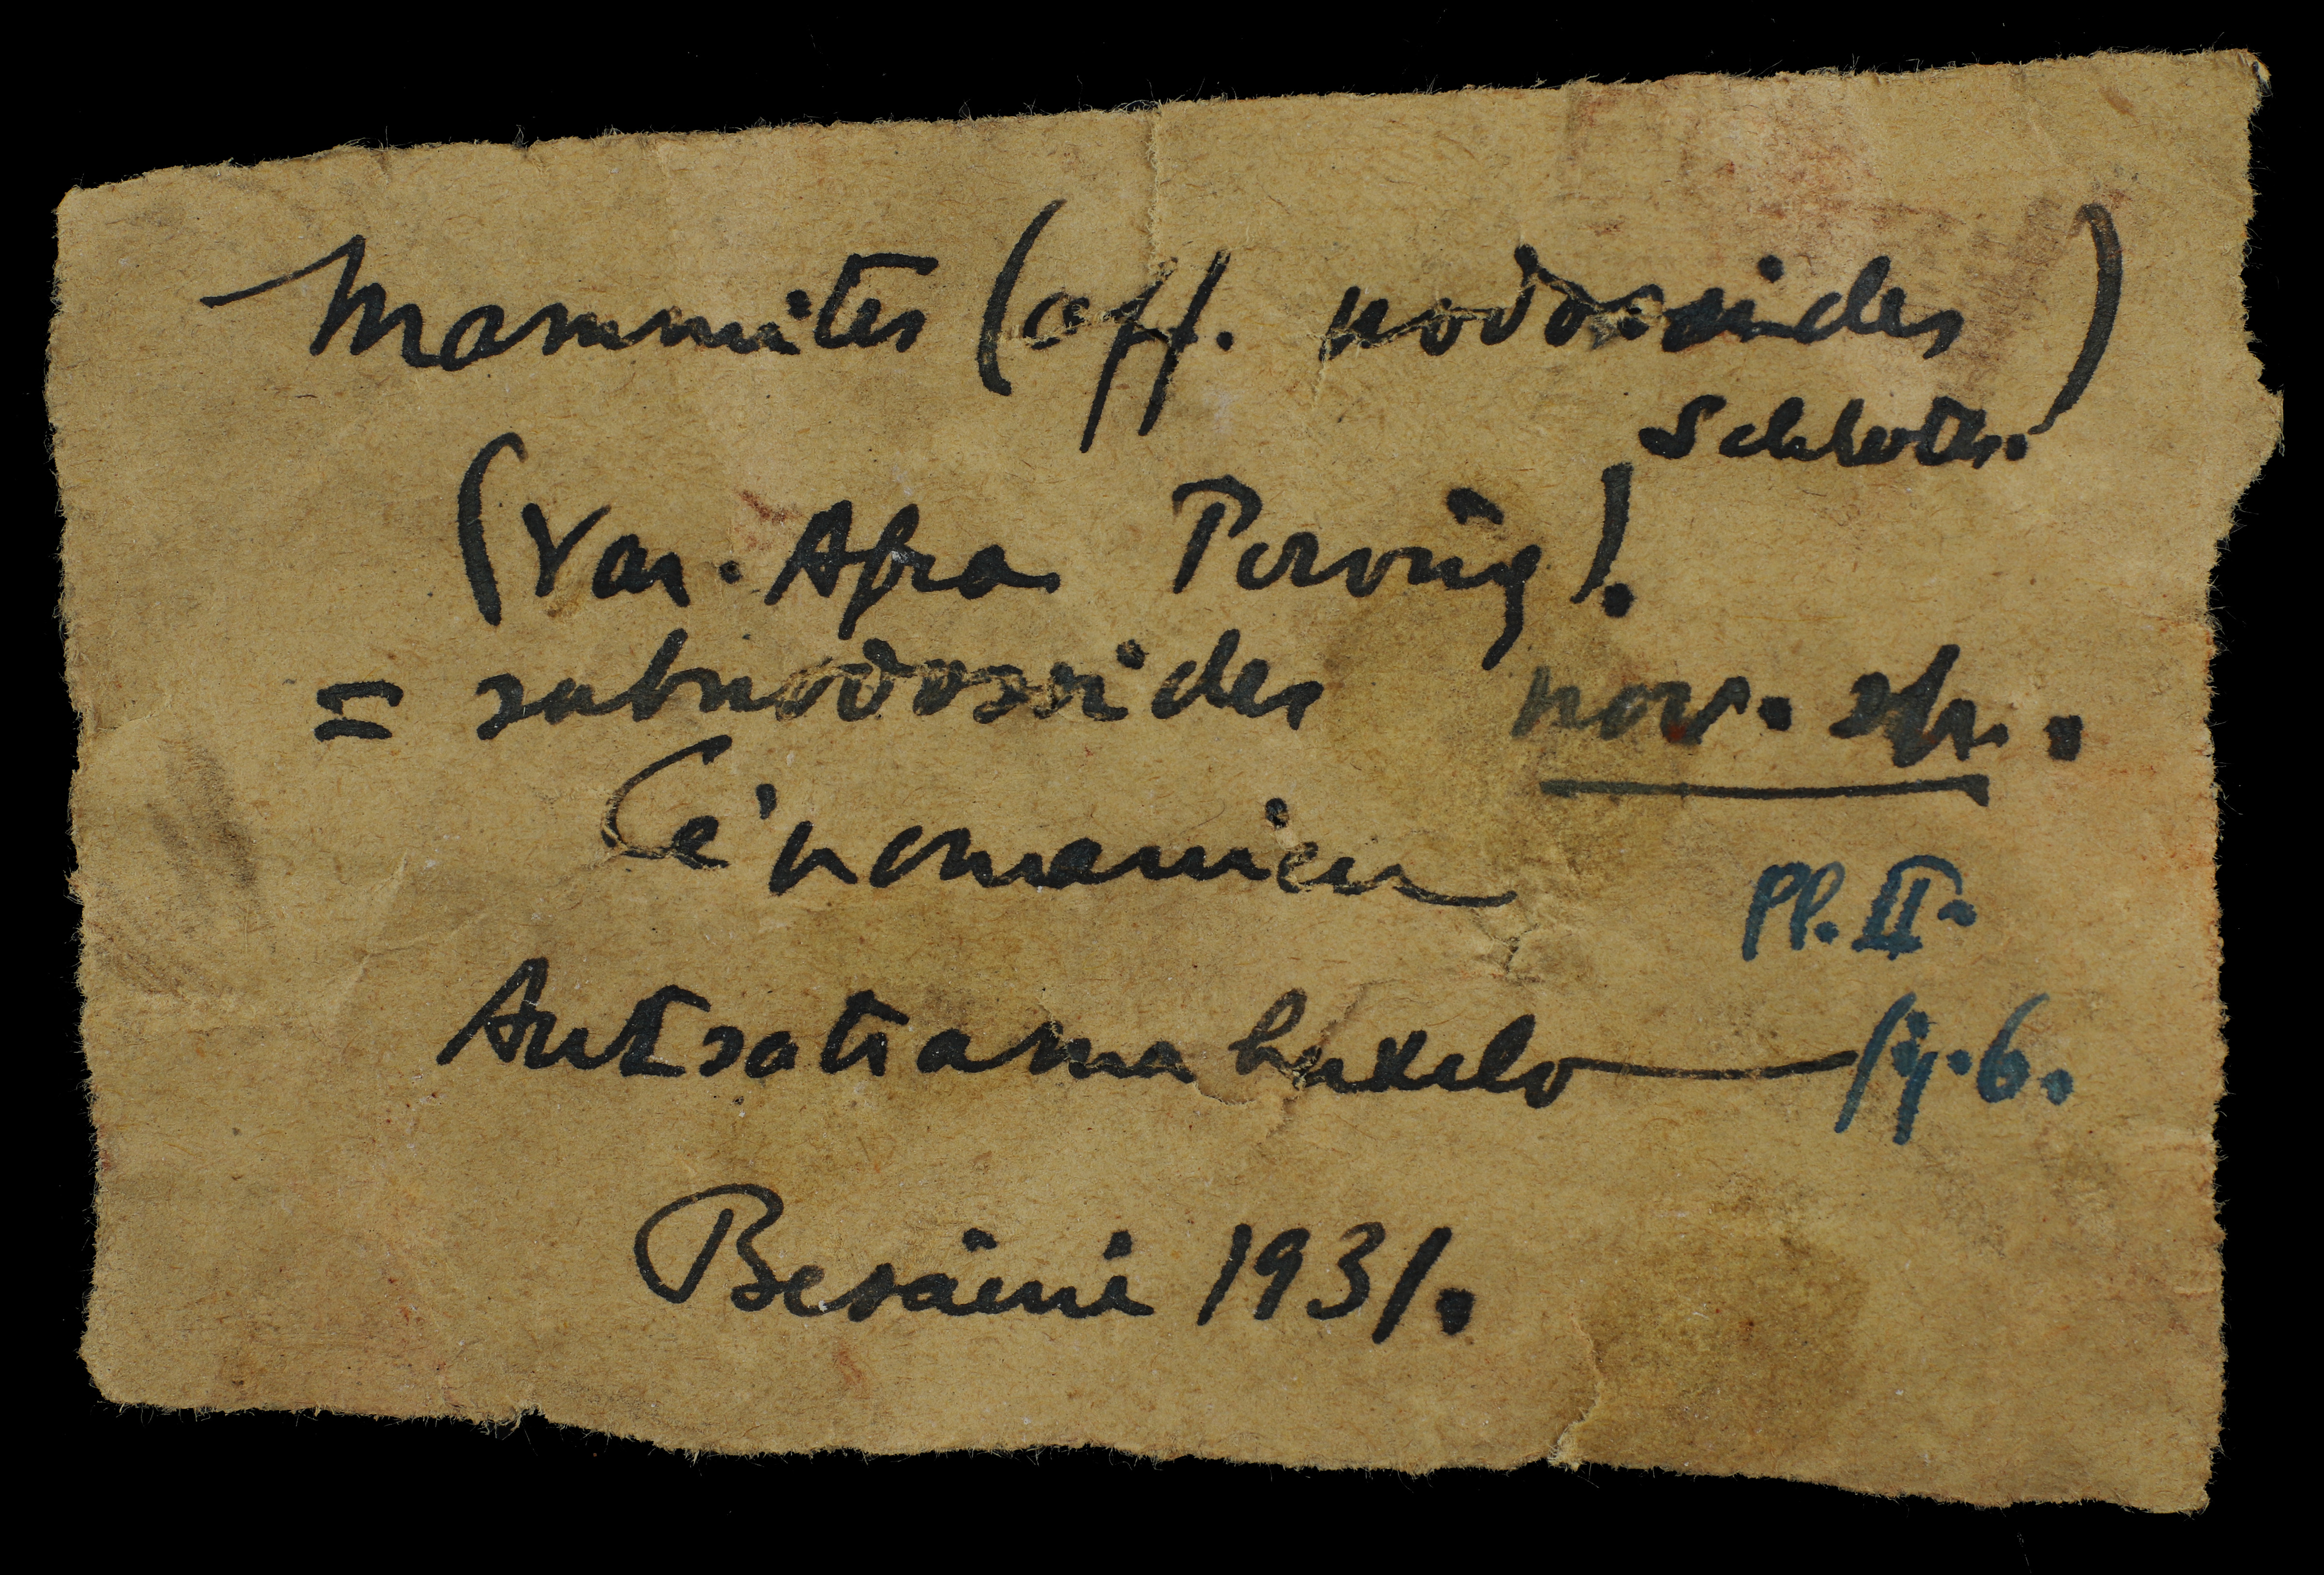 Mammites (aff. nodosoides
Schloth.)
(Var. Afra Perving).
= subnodosoides nov. sp..
Cénomanien
Pl. II.
Antsatramahavelo — fig. 6.
Besairie 1931.